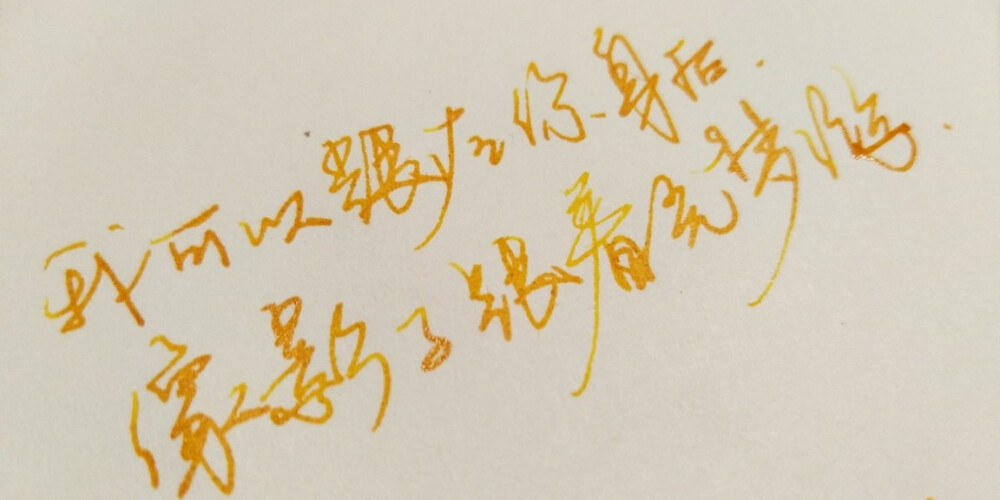 我可以跟在你身后.
像影子跟着光梦游.